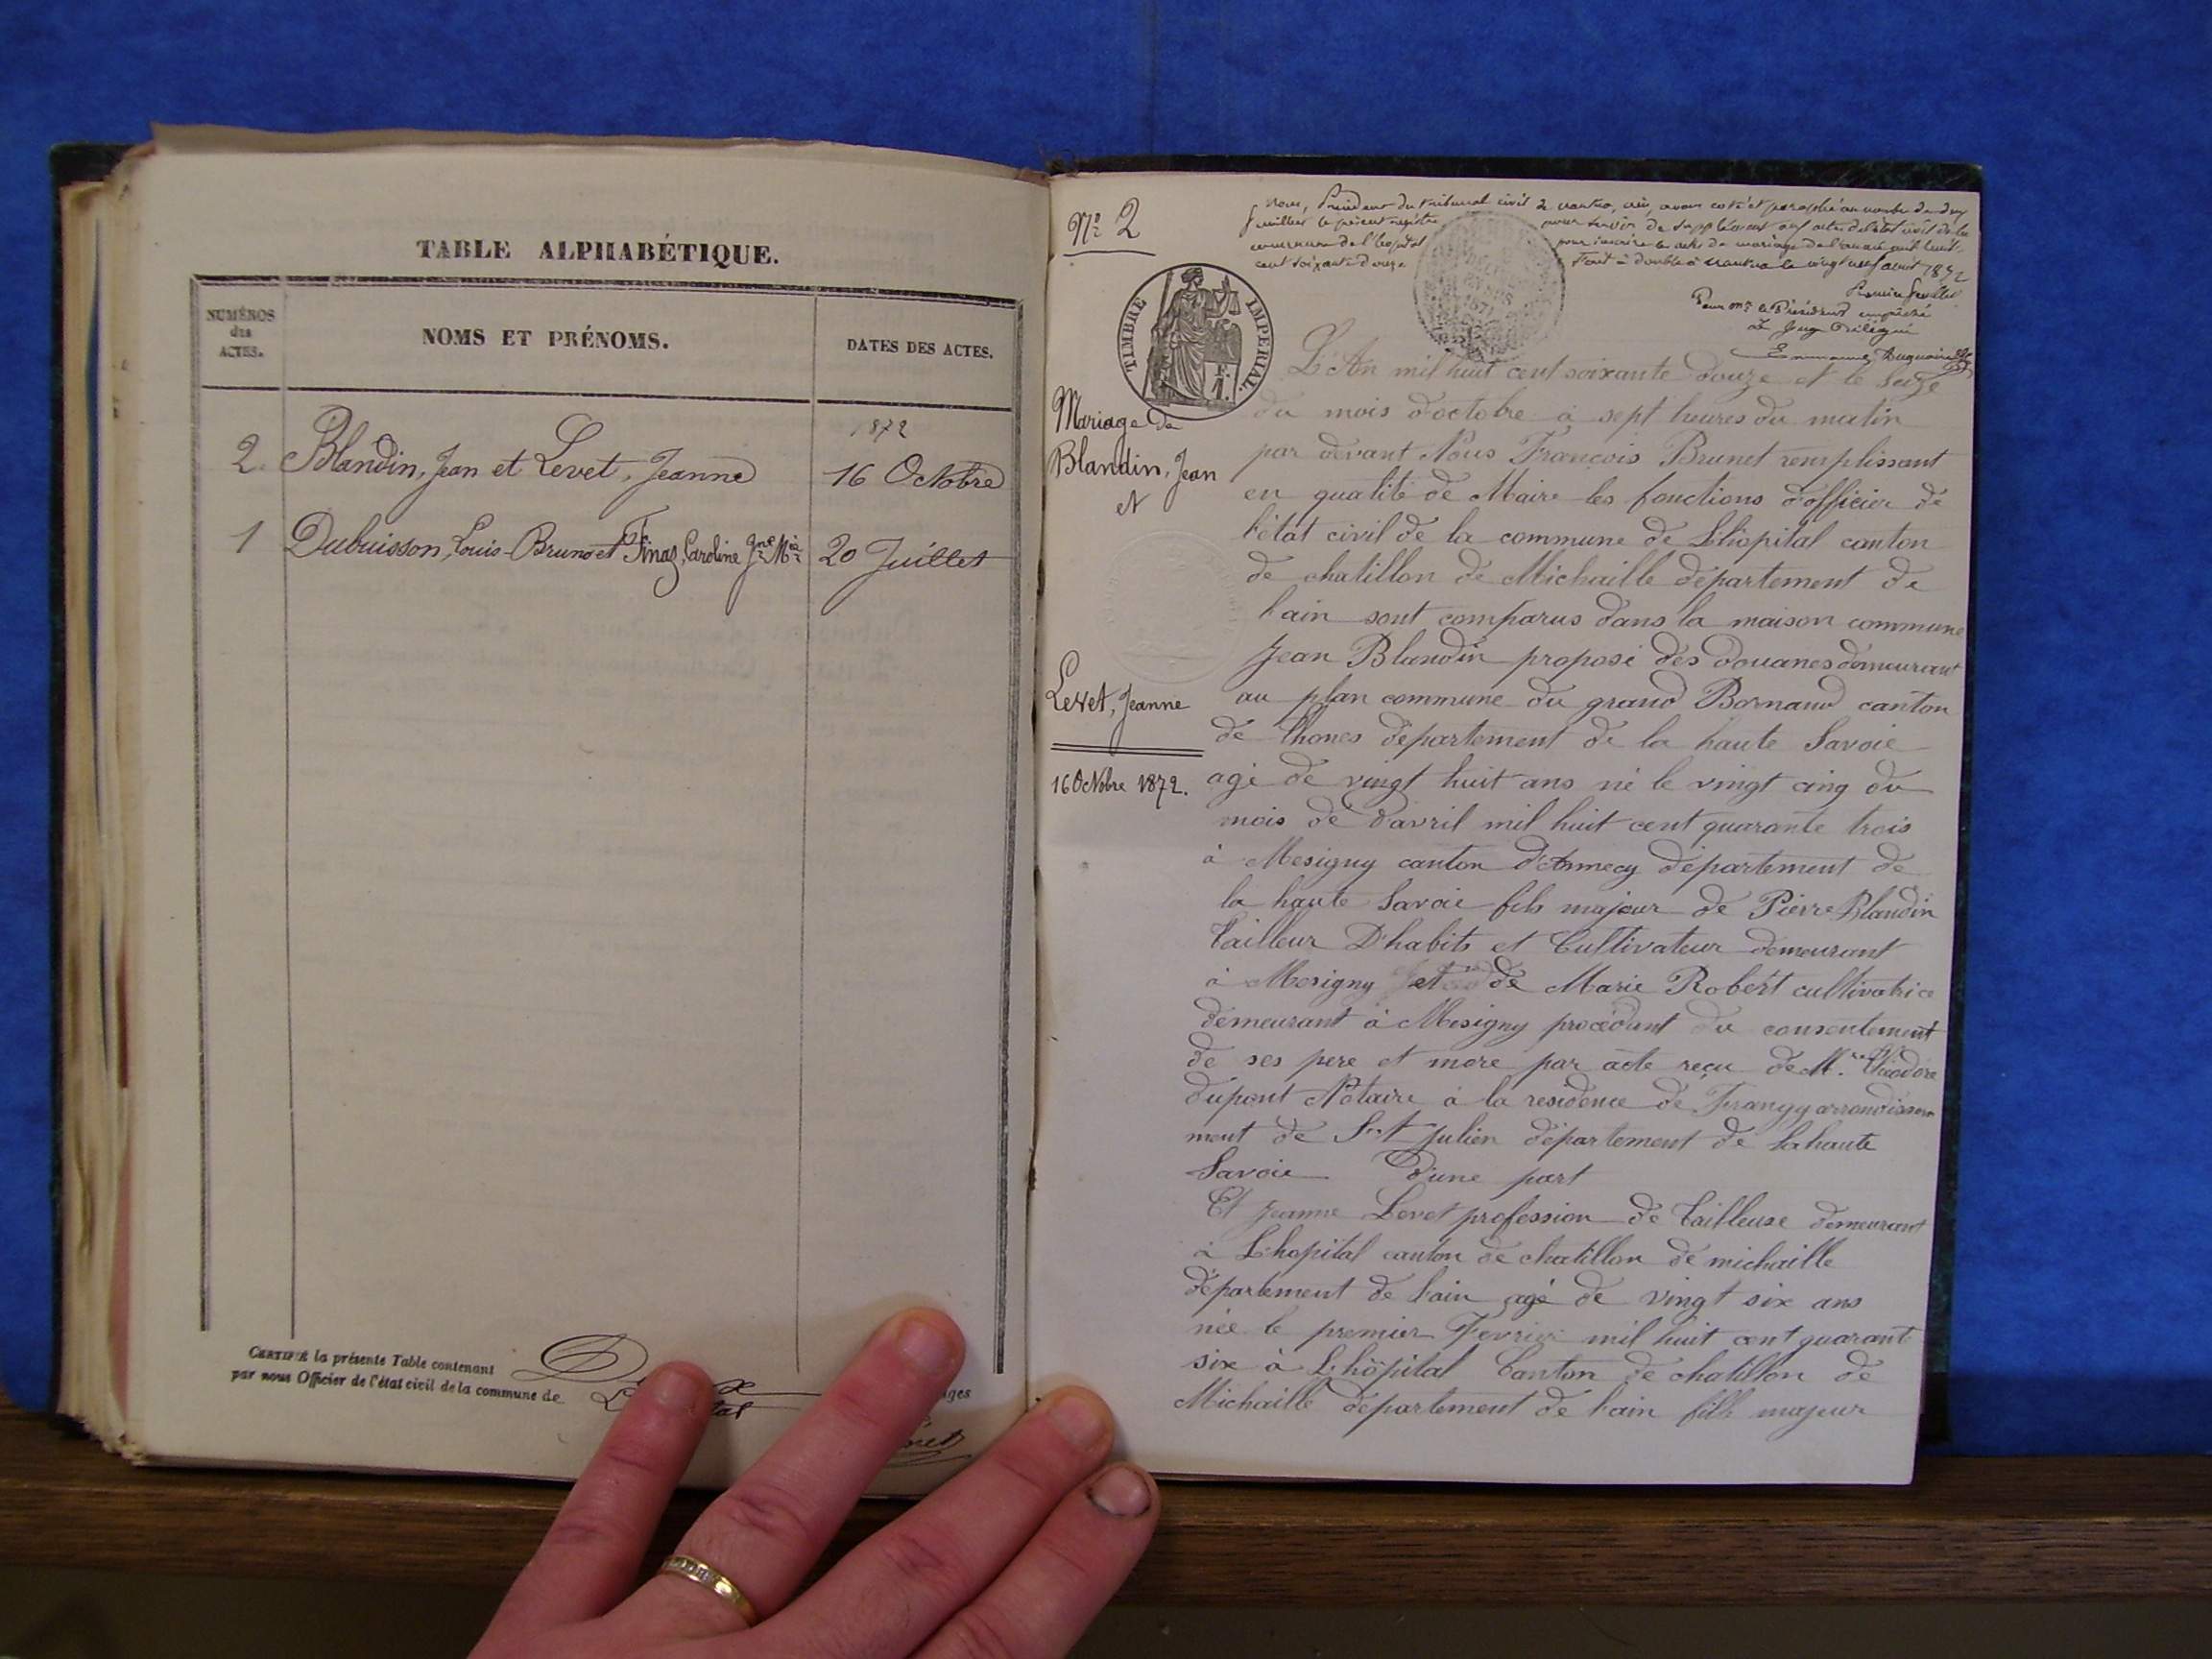 TABLE ALPHABÉTIQUE.
NUMÉROS
des
ACTES.
NOMS ET PRÉNOMS.
DATES DES ACTES.
1872
2. Blandin, Jean et Levet, Jeanne 16 Octobre
1 Dubuisson, Louis-Bruno et Finaz, Caroline Jne Mie 20 Juillet
CERTIFIÉ la présente Table contenant
par nous Officier de l'état civil de la commune de
N° 2
Nous, Président du tribunal civil de Nantua, avons coté et paraphé au nombre de deux
feuillets le présent registre pour servir de supplément aux actes de l'état civil de la
commune de l'hopital pour inscrire les actes de mariage de l'année mil huit-
cent soixante douze. Fait à double à Nantua le vingt neuf août 1872
Pour Mr le Président empêché
Le Juge Délégué
TIMBRE IMPÉRIAL.
1 F.
1871
Mariage de
Blandin, Jean
et
Levet, Jeanne
16 Octobre 1872.
L'An mil huit cent soixante douze et le Seize
du mois d'octobre à sept heures du matin
par devant Nous François Brunet remplissant
en qualité de Maire les fonctions d'officier de
l'état civil de la commune de Lhopital canton
de chatillon de Michaille département de
l'ain sont comparus dans la maison commune
Jean Blandin proposé des douanes demeurant
au plan commune du grand Bornand canton
de thones département de la haute Savoie
agé de vingt huit ans né le vingt cinq du
mois de d'avril mil huit cent quarante trois
à Mesigny canton d'Annecy département de
la haute Savoie fils majeur de Pierre Blandin
tailleur D'habits et Cultivateur demeurant
à Mesigny et de Marie Robert cultivatrice
demeurant à Mesigny procédant du consentement
de ses pere et mere par acte reçu de Mre théodore
dupont Notaire à la residence de Frangy arrondissem
ment de St Julien département de la haute
Savoie D'une part
Et Jeanne Levet profession de tailleuse demeurant
à L'hopital canton de chatillon de michaille
département de l'ain agé de vingt six ans
née le premier Fevrier mil huit cent quarant
six à L'hôpital Canton de chatillon de
Michaille département de l'ain fille majeur